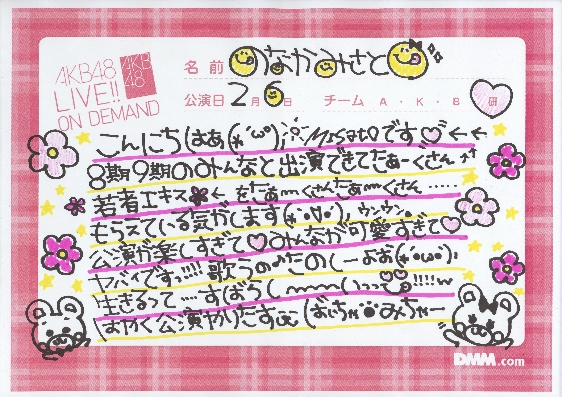 AKB48
LIVE!!
ON DEMAND
AKB
48
名前 のなかみさと
公演日 2月6日 チーム A・K・B 研
こんにちはぁぁ(*´ω`) Misatoです♡←←
8期9期のみんなと出演できてたぁーくさん
若者エキス←をたぁーくさんたぁーくさん……
もらえている気がします(*´∀`)ウンウン。
公演が楽しすぎて♡みんなが可愛すぎて♡
ヤバイですっ!!!! 歌うのみたのしーよぉぉ(*´ω`)
生きるって……すばらしーーーいっっっ!!!!w
はやく公演やりたす
ばいちゃ みちゃー
DMM.com